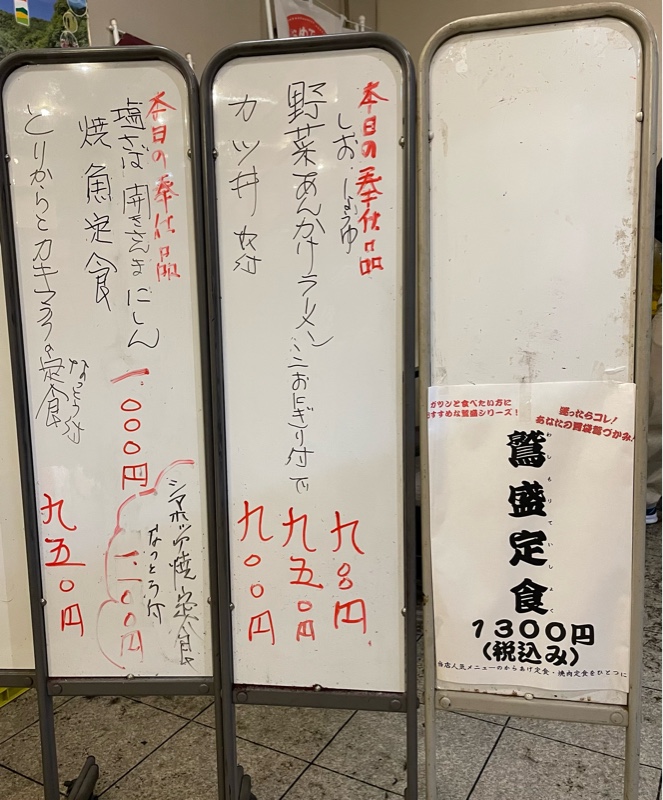 本日の奉仕品
塩さば 開きさんま にしん
焼魚定食
一.〇〇〇円
シマホッケ焼定食
なっとう付
一.一〇〇円
とりからとカキフライの定食
なっとう付
九五〇円
本日の奉仕品
しお、しょうゆ
九〇〇円
野菜あんかけラーメン ミニおにぎり付で
九五〇円
カツ丼 奴付
九〇〇円
ガツンと食べたい方に
おすすめな鷲盛シリーズ!
迷ったらコレ!
あなたの胃袋鷲づかみ!
鷲盛定食
わしもりていしょく
1300円
(税込み)
当店人気メニューのからあげ定食・焼肉定食をひとつに